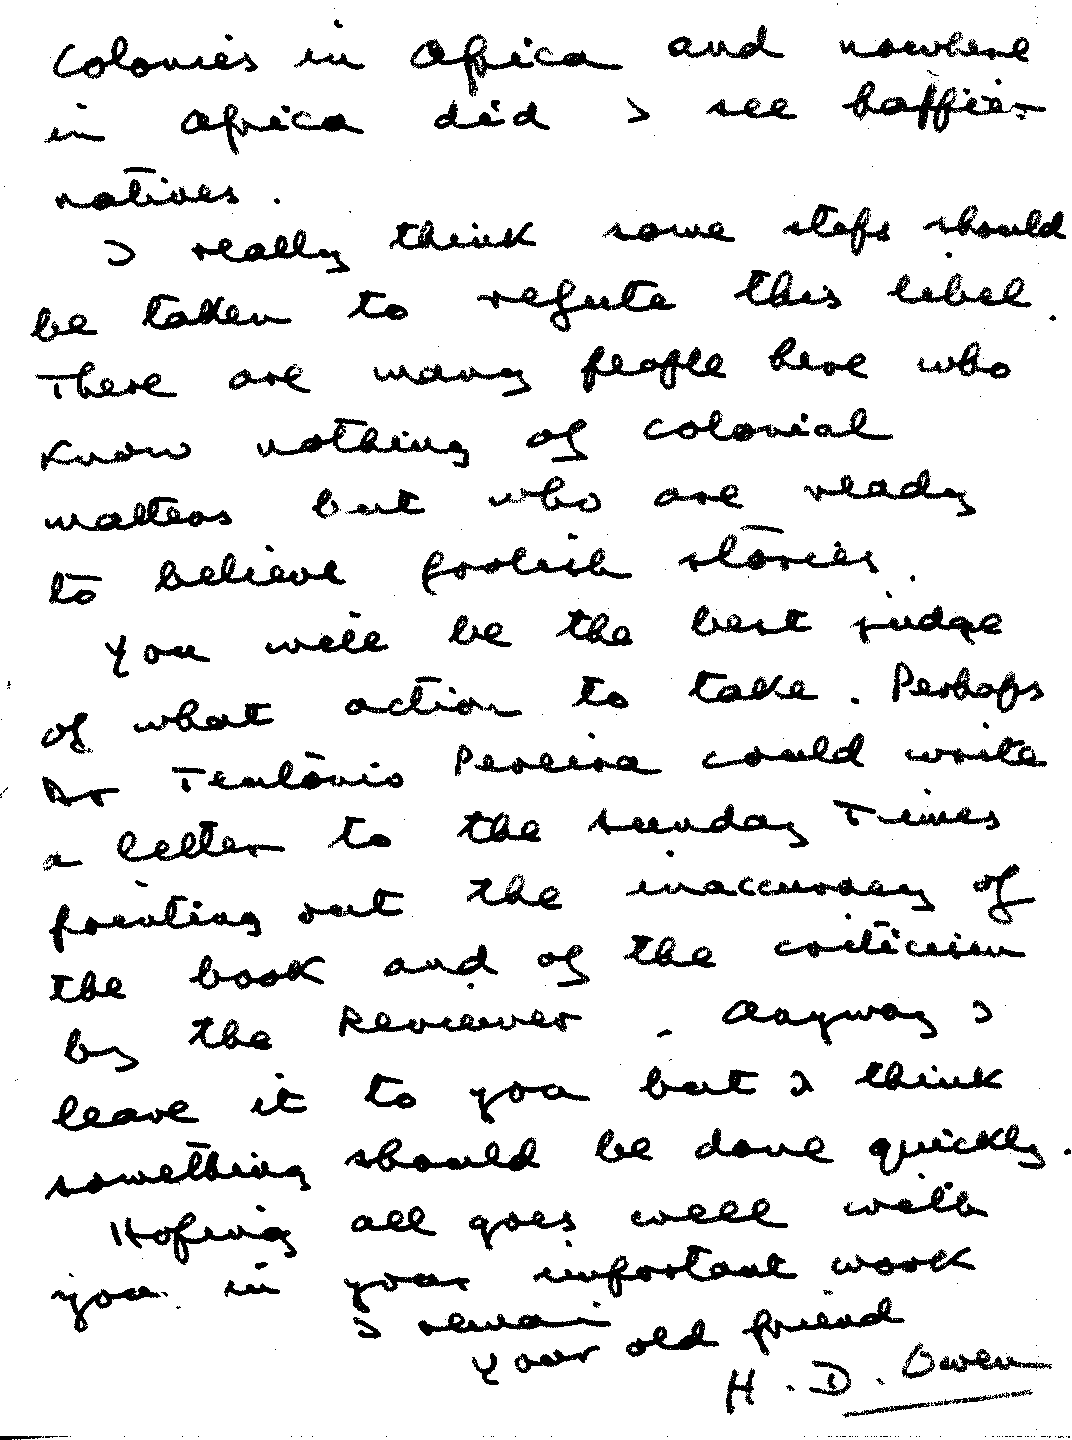 colonies in Africa and nowhere
in Africa did I see happier
natives.
I really think some steps should
be taken to refute this libel.
There are many people here who
know nothing of colonial
matters but who are ready
to believe foolish stories.
You will be the best judge
of what action to take. Perhaps
Dr Teotónio Pereira could write
a letter to the Sunday Times
pointing out the inaccuracy of
the book and of the criticism
by the Reviewer. Anyway I
leave it to you but I think
something should be done quickly.
Hoping all goes well with
you in your important work
I remain
Your old friend
H. D. Owen